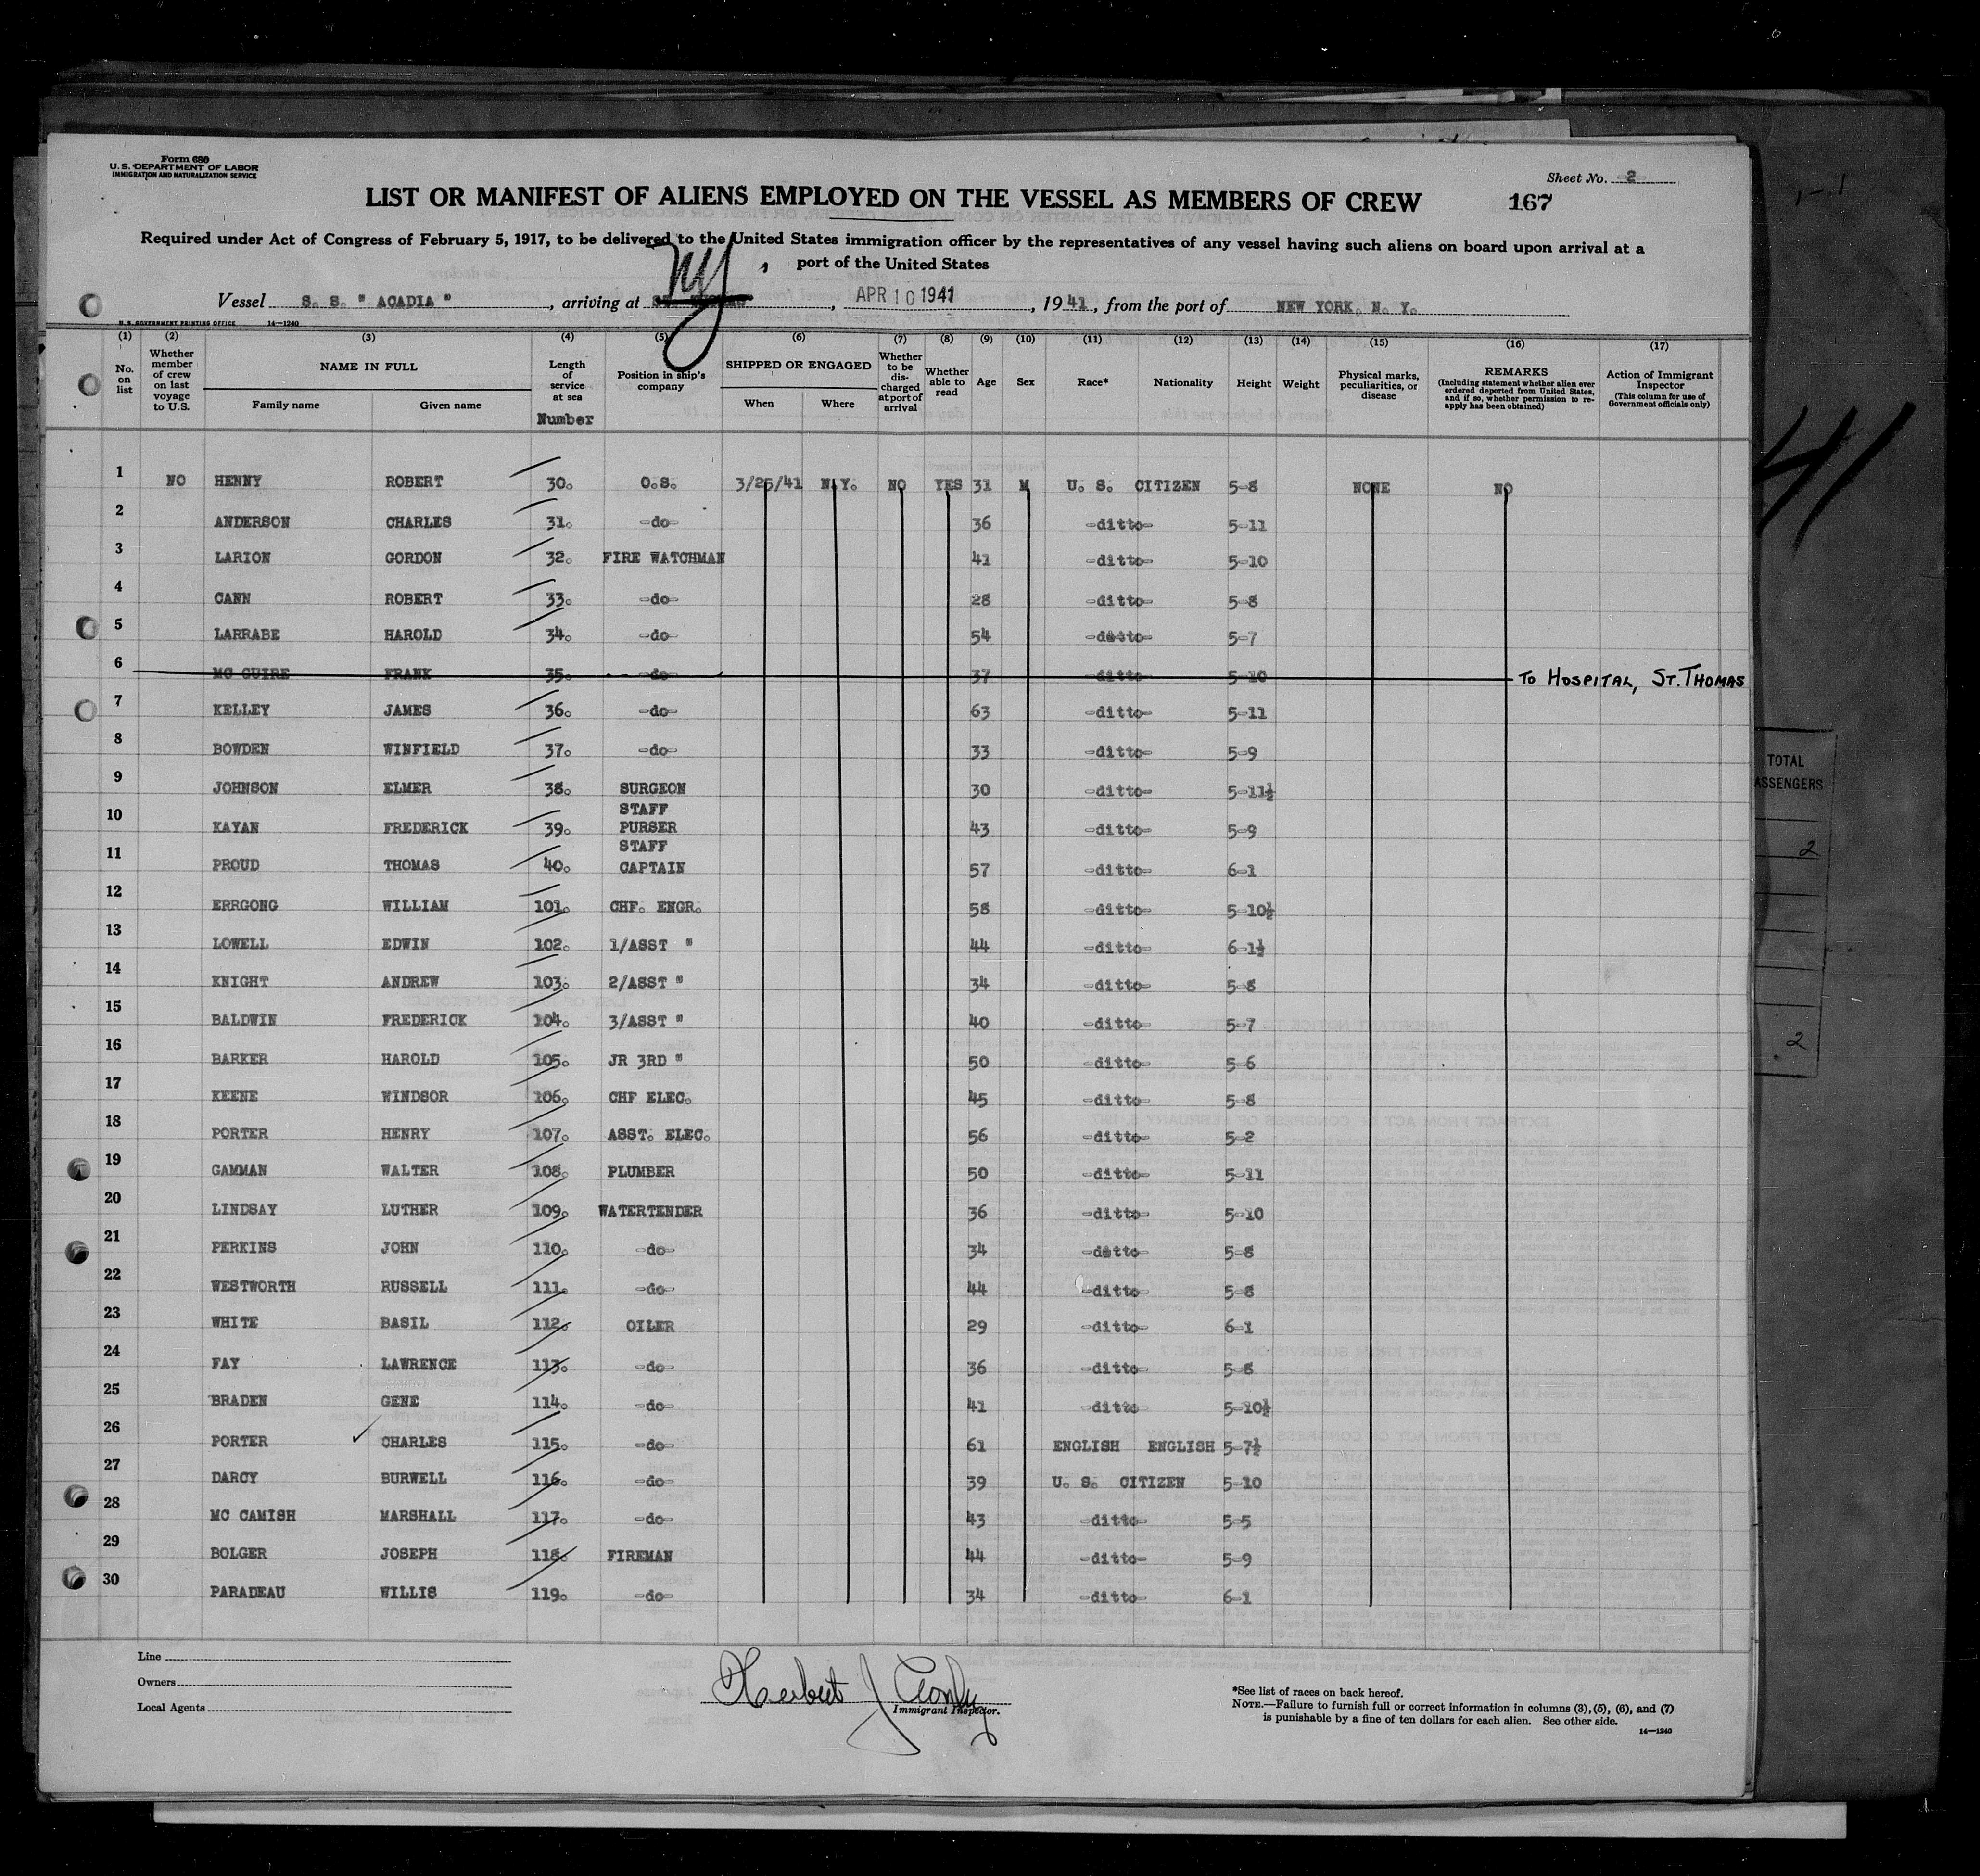 Form 680
U. S. DEPARTMENT OF LABOR
IMMIGRATION AND NATURALIZATION SERVICE
Sheet No. 2
LIST OR MANIFEST OF ALIENS EMPLOYED ON THE VESSEL AS MEMBERS OF CREW 167
Required under Act of Congress of February 5, 1917, to be delivered to the United States immigration officer by the representatives of any vessel having such aliens on board upon arrival at a
port of the United States
NY
Vessel S. S. " ACADIA ", arriving at ST. THOMAS, APR 10 1941, 1941, from the port of NEW YORK N. Y.
U. S. GOVERNMENT PRINTING OFFICE 14—1240
(1) (2) (3) (4) (5) (6) (7) (8) (9) (10) (11) (12) (13) (14) (15) (16) (17)
No. on list
Whether member of crew on last voyage to U.S.
NAME IN FULL
Family name Given name
Length of service at sea
Number
Position in ship's company
SHIPPED OR ENGAGED
When Where
Whether to be discharged at port of arrival
Whether able to read
Age Sex Race* Nationality Height Weight
Physical marks, peculiarities, or disease
REMARKS
(Including statement whether alien ever ordered deported from United States, and if so, whether permission to reapply has been obtained)
Action of Immigrant Inspector
(This column for use of Government officials only)
1 NO HENNY ROBERT 30. O.S. 3/25/41 N.Y. NO YES 31 M U. S. CITIZEN 5-8 NONE NO
2 ANDERSON CHARLES 31. -do- 36 -ditto- 5-11
3 LARION GORDON 32. FIRE WATCHMAN 41 -ditto- 5-10
4 CANN ROBERT 33. -do- 28 -ditto- 5-8
5 LARRABE HAROLD 34. -do- 54 -ditto- 5-7
6 MC GUIRE FRANK 35. -do- 37 -ditto- 5-10 TO HOSPITAL, ST. THOMAS
7 KELLEY JAMES 36. -do- 63 -ditto- 5-11
8 BOWDEN WINFIELD 37. -do- 33 -ditto- 5-9
9 JOHNSON ELMER 38. SURGEON 30 -ditto- 5-11½
10 KAYAN FREDERICK 39. STAFF PURSER 43 -ditto- 5-9
11 PROUD THOMAS 40. STAFF CAPTAIN 57 -ditto- 6-1
12 ERRGONG WILLIAM 101. CHF. ENGR. 58 -ditto- 5-10½
13 LOWELL EDWIN 102. 1/ASST " 44 -ditto- 6-1½
14 KNIGHT ANDREW 103. 2/ASST " 34 -ditto- 5-8
15 BALDWIN FREDERICK 104. 3/ASST " 40 -ditto- 5-7
16 BARKER HAROLD 105. JR 3RD " 50 -ditto- 5-6
17 KEENE WINDSOR 106. CHF ELEC. 45 -ditto- 5-8
18 PORTER HENRY 107. ASST. ELEC. 56 -ditto- 5-2
19 GAMMAN WALTER 108. PLUMBER 50 -ditto- 5-11
20 LINDSAY LUTHER 109. WATERTENDER 36 -ditto- 5-10
21 PERKINS JOHN 110. -do- 34 -ditto- 5-8
22 WESTWORTH RUSSELL 111. -do- 44 -ditto- 5-8
23 WHITE BASIL 112. OILER 29 -ditto- 6-1
24 FAY LAWRENCE 113. -do- 36 -ditto- 5-8
25 BRADEN GENE 114. -do- 41 -ditto- 5-10½
26 PORTER ✓ CHARLES 115. -do- 61 ENGLISH ENGLISH 5-7½
27 DARCY BURWELL 116. -do- 39 U. S. CITIZEN 5-10
28 MC CAMISH MARSHALL 117. -do- 43 -ditto- 5-5
29 BOLGER JOSEPH 118. FIREMAN 44 -ditto- 5-9
30 PARADEAU WILLIS 119. -do- 34 -ditto- 6-1
Line
Owners
Local Agents
Herbert J
Immigrant Inspector.
*See list of races on back hereof.
NOTE.—Failure to furnish full or correct information in columns (3), (5), (6), and (7)
is punishable by a fine of ten dollars for each alien. See other side.
14—1240
41
TOTAL
ASSENGERS
2
2